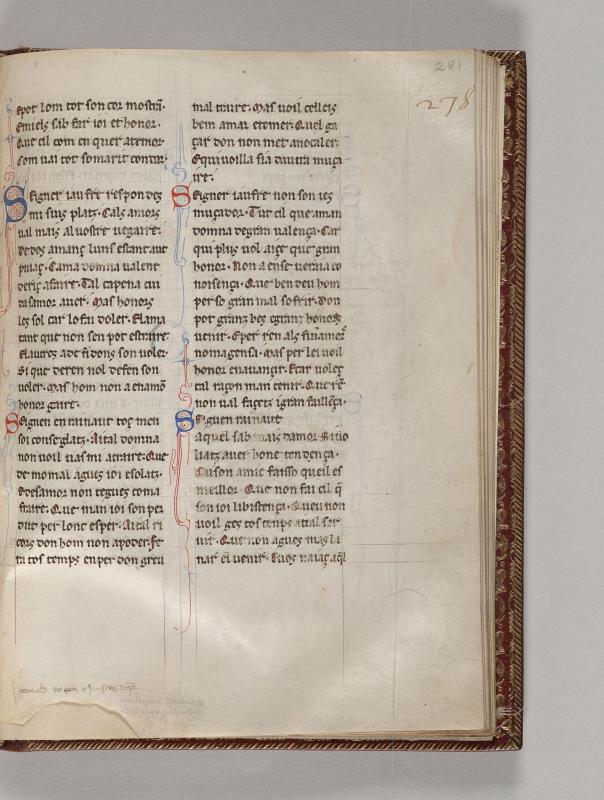 281
278
epot lom tot son cor mostrar.
emiels sab far ioi et honor.
Que cil com en quer atemor
Com uai tot somarit contra.
Seigner iaufre respondeз
mi sius plaтз. Cals amors
ual mais al uostre ueiaire.
de dos amanз luns estant aut
puiaз. Cama domna ualent
deric afaire. Tal capena cu
da samor auer. Mas honors
les sol car lo fai uoler. Elama
tant que non sen pot estraire
Elautres ade fi dons son uoler
Si que deren nol defen son
uoler. Mas hom non a enamo
honor gaire.
Seigner en rainaut toз men
soi conseglatз. Aital domna
non uoil uas mi atraire. Que
de mo mal agues ioi esolatз.
Edesamor non tegues coma
fraire. Que man ioi son per
dut per lonc esper. Aital ri
cors don hom non apoder. Se
ra tos temps en per don greu
mal traire. Mas uoil celleis
bem amar etemer. Quel ga
çar don non met anocaler.
Equi uoilla sia dautra muça
ire.
Seigner iaufre non son ies
muçador. Tut cil que aman
domna de gran ualença. Car
qui plus uol aiçe que gran
honor. Non a en se uerai a co
noisença. Que ben deu hom
per so gran mal sofrir. Don
pot granз bes egranз honors
uenir. Eper ren als fin amors
no magensa. Mas per lei uoil
honor enauançir. Ecar uoleз
tal raçon man tenir. Que re
non ual faiçetз i gran faillença.
Siguen rainaut
aquel sab mais damor.
liatз auer bone tendença.
son amic faisso queil es
meillor. Que non fai cil q̃
son ioi libistença. Queu non
uoil ges tos temps aital ser
uir. Que non agues mas la
nar el uenir. Euos uaiaз aql